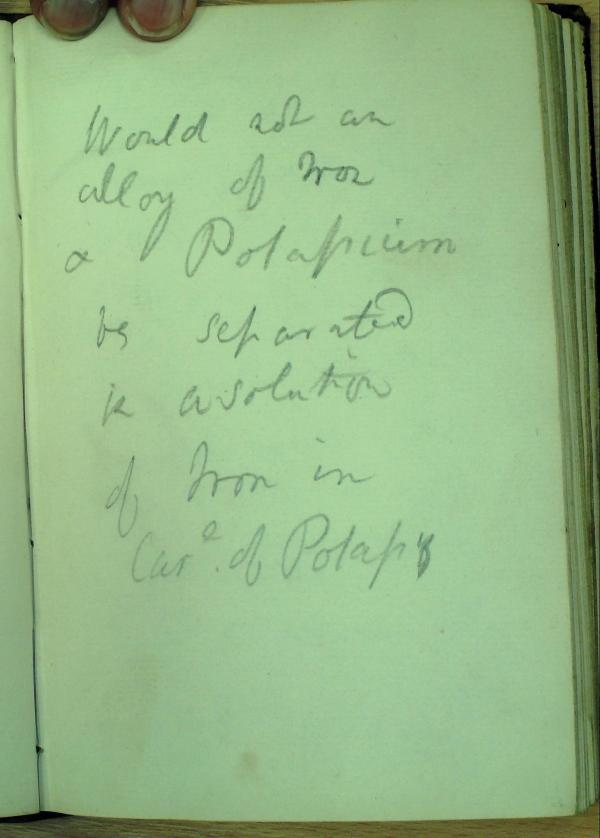 Would not an
alloy of Iron
& Potassium
be separated
in a solution
of Iron in
Car.e of Potass